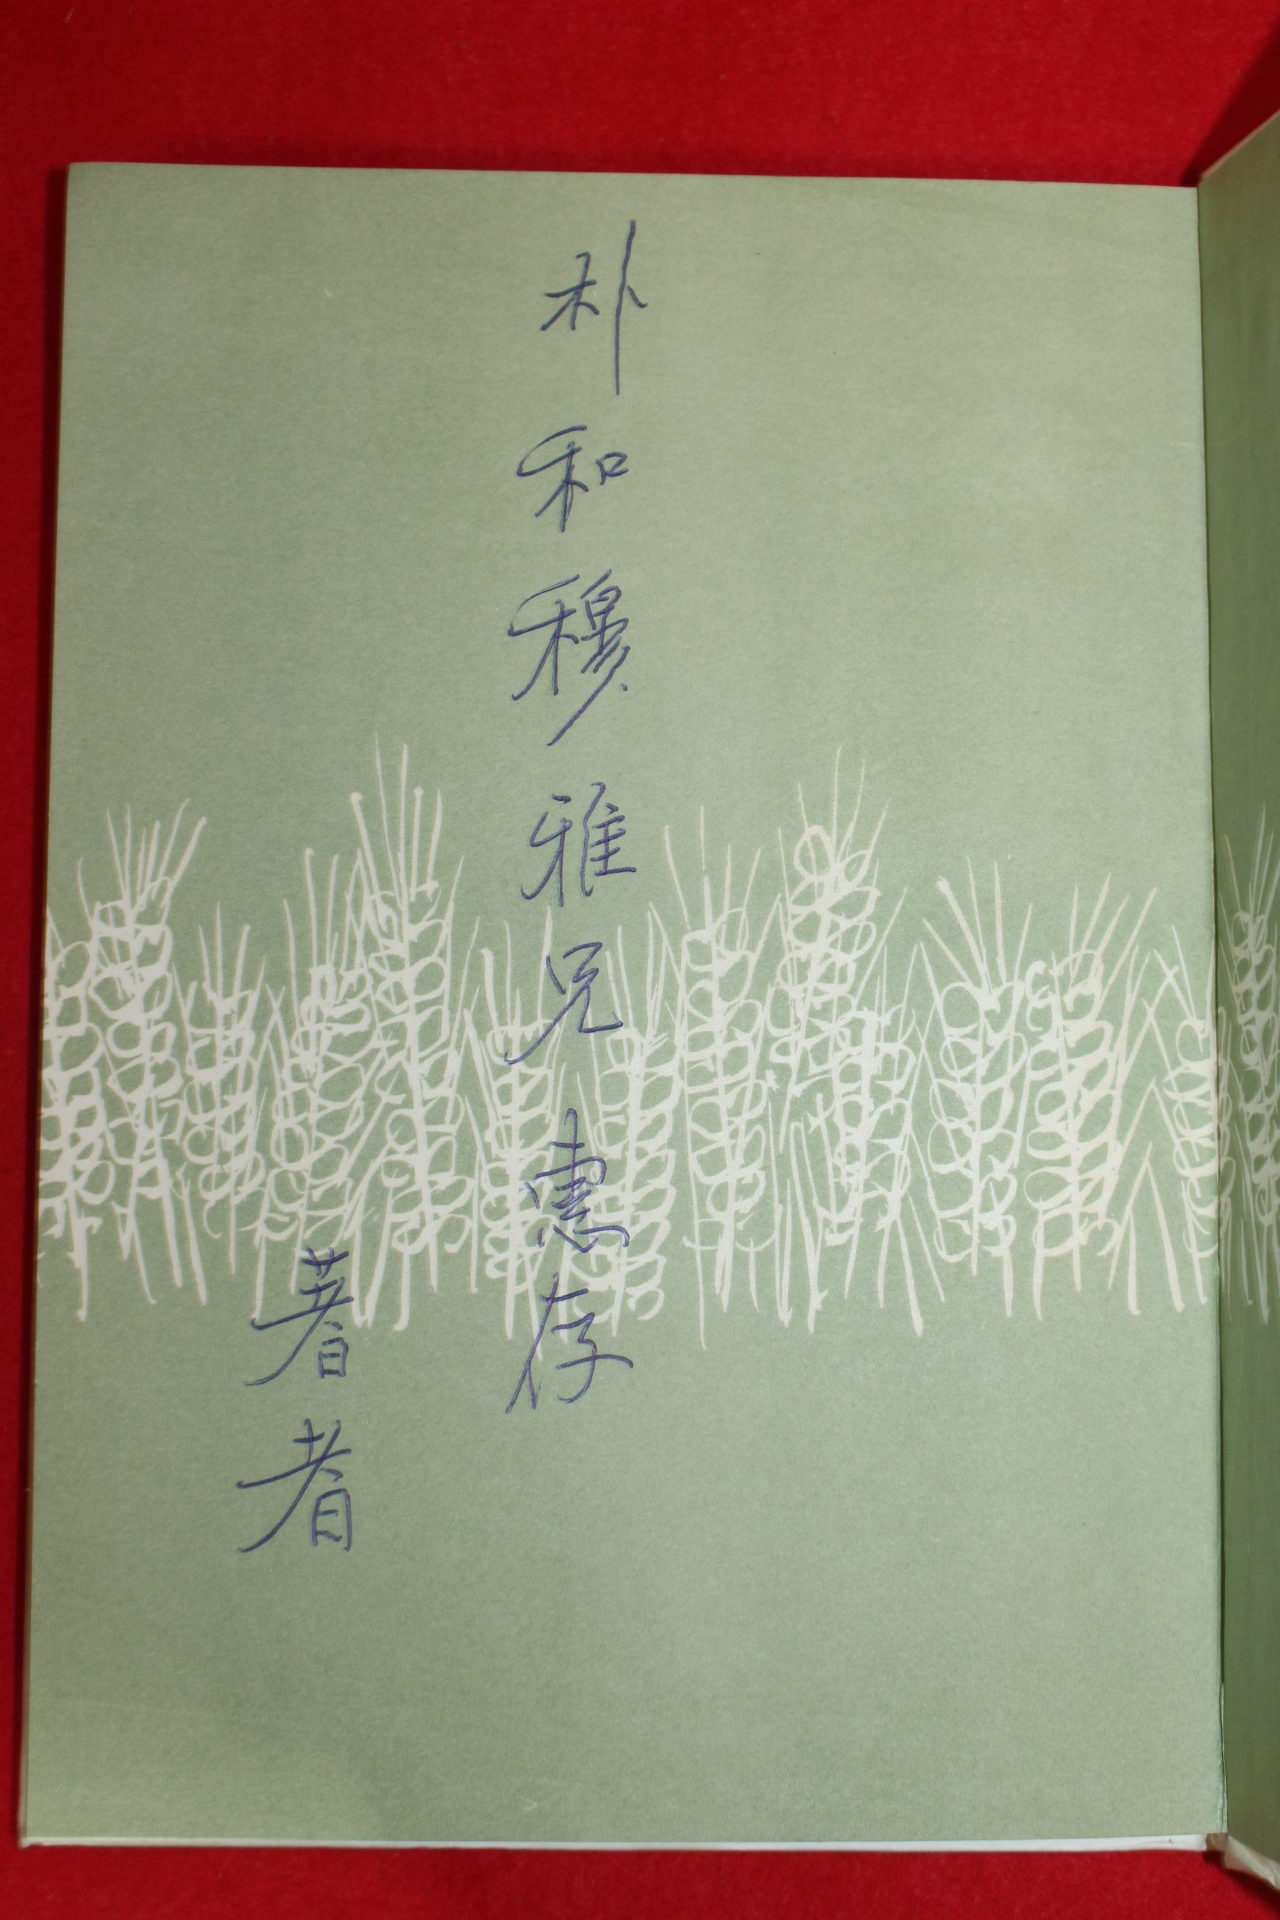 朴和穆雅兄 惠存
著者